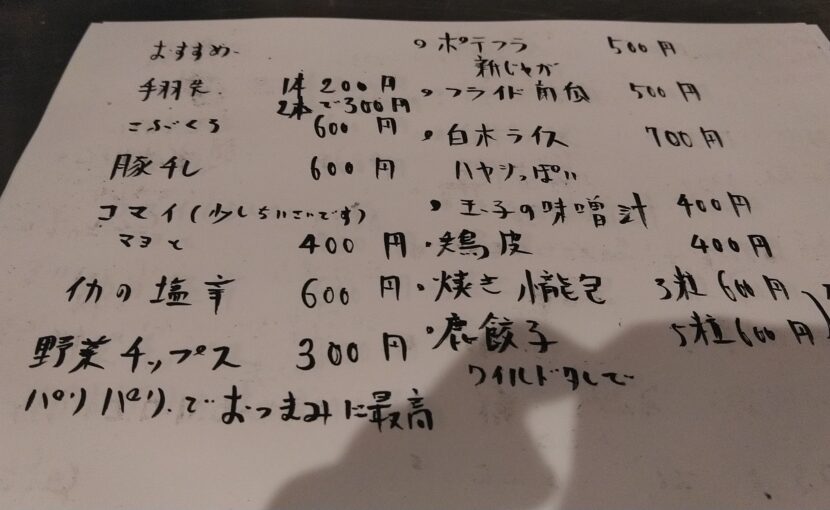 おすすめ
手羽先 1本 200円
2本で300円
こぶくろ 600円
豚チレ 600円
コマイ(少しちいさいです)
マヨと 400円
イカの塩辛 600円
野菜チップス 300円
パリパリでおつまみに最高
・ポテフラ 500円
新じゃが
・フライド 500円
・白ホライス 700円
ハヤシっぽい
・玉子の味噌汁 400円
・鶏皮 400円
・焼き小龍包 3粒600円
・鹿餃子 5粒600円